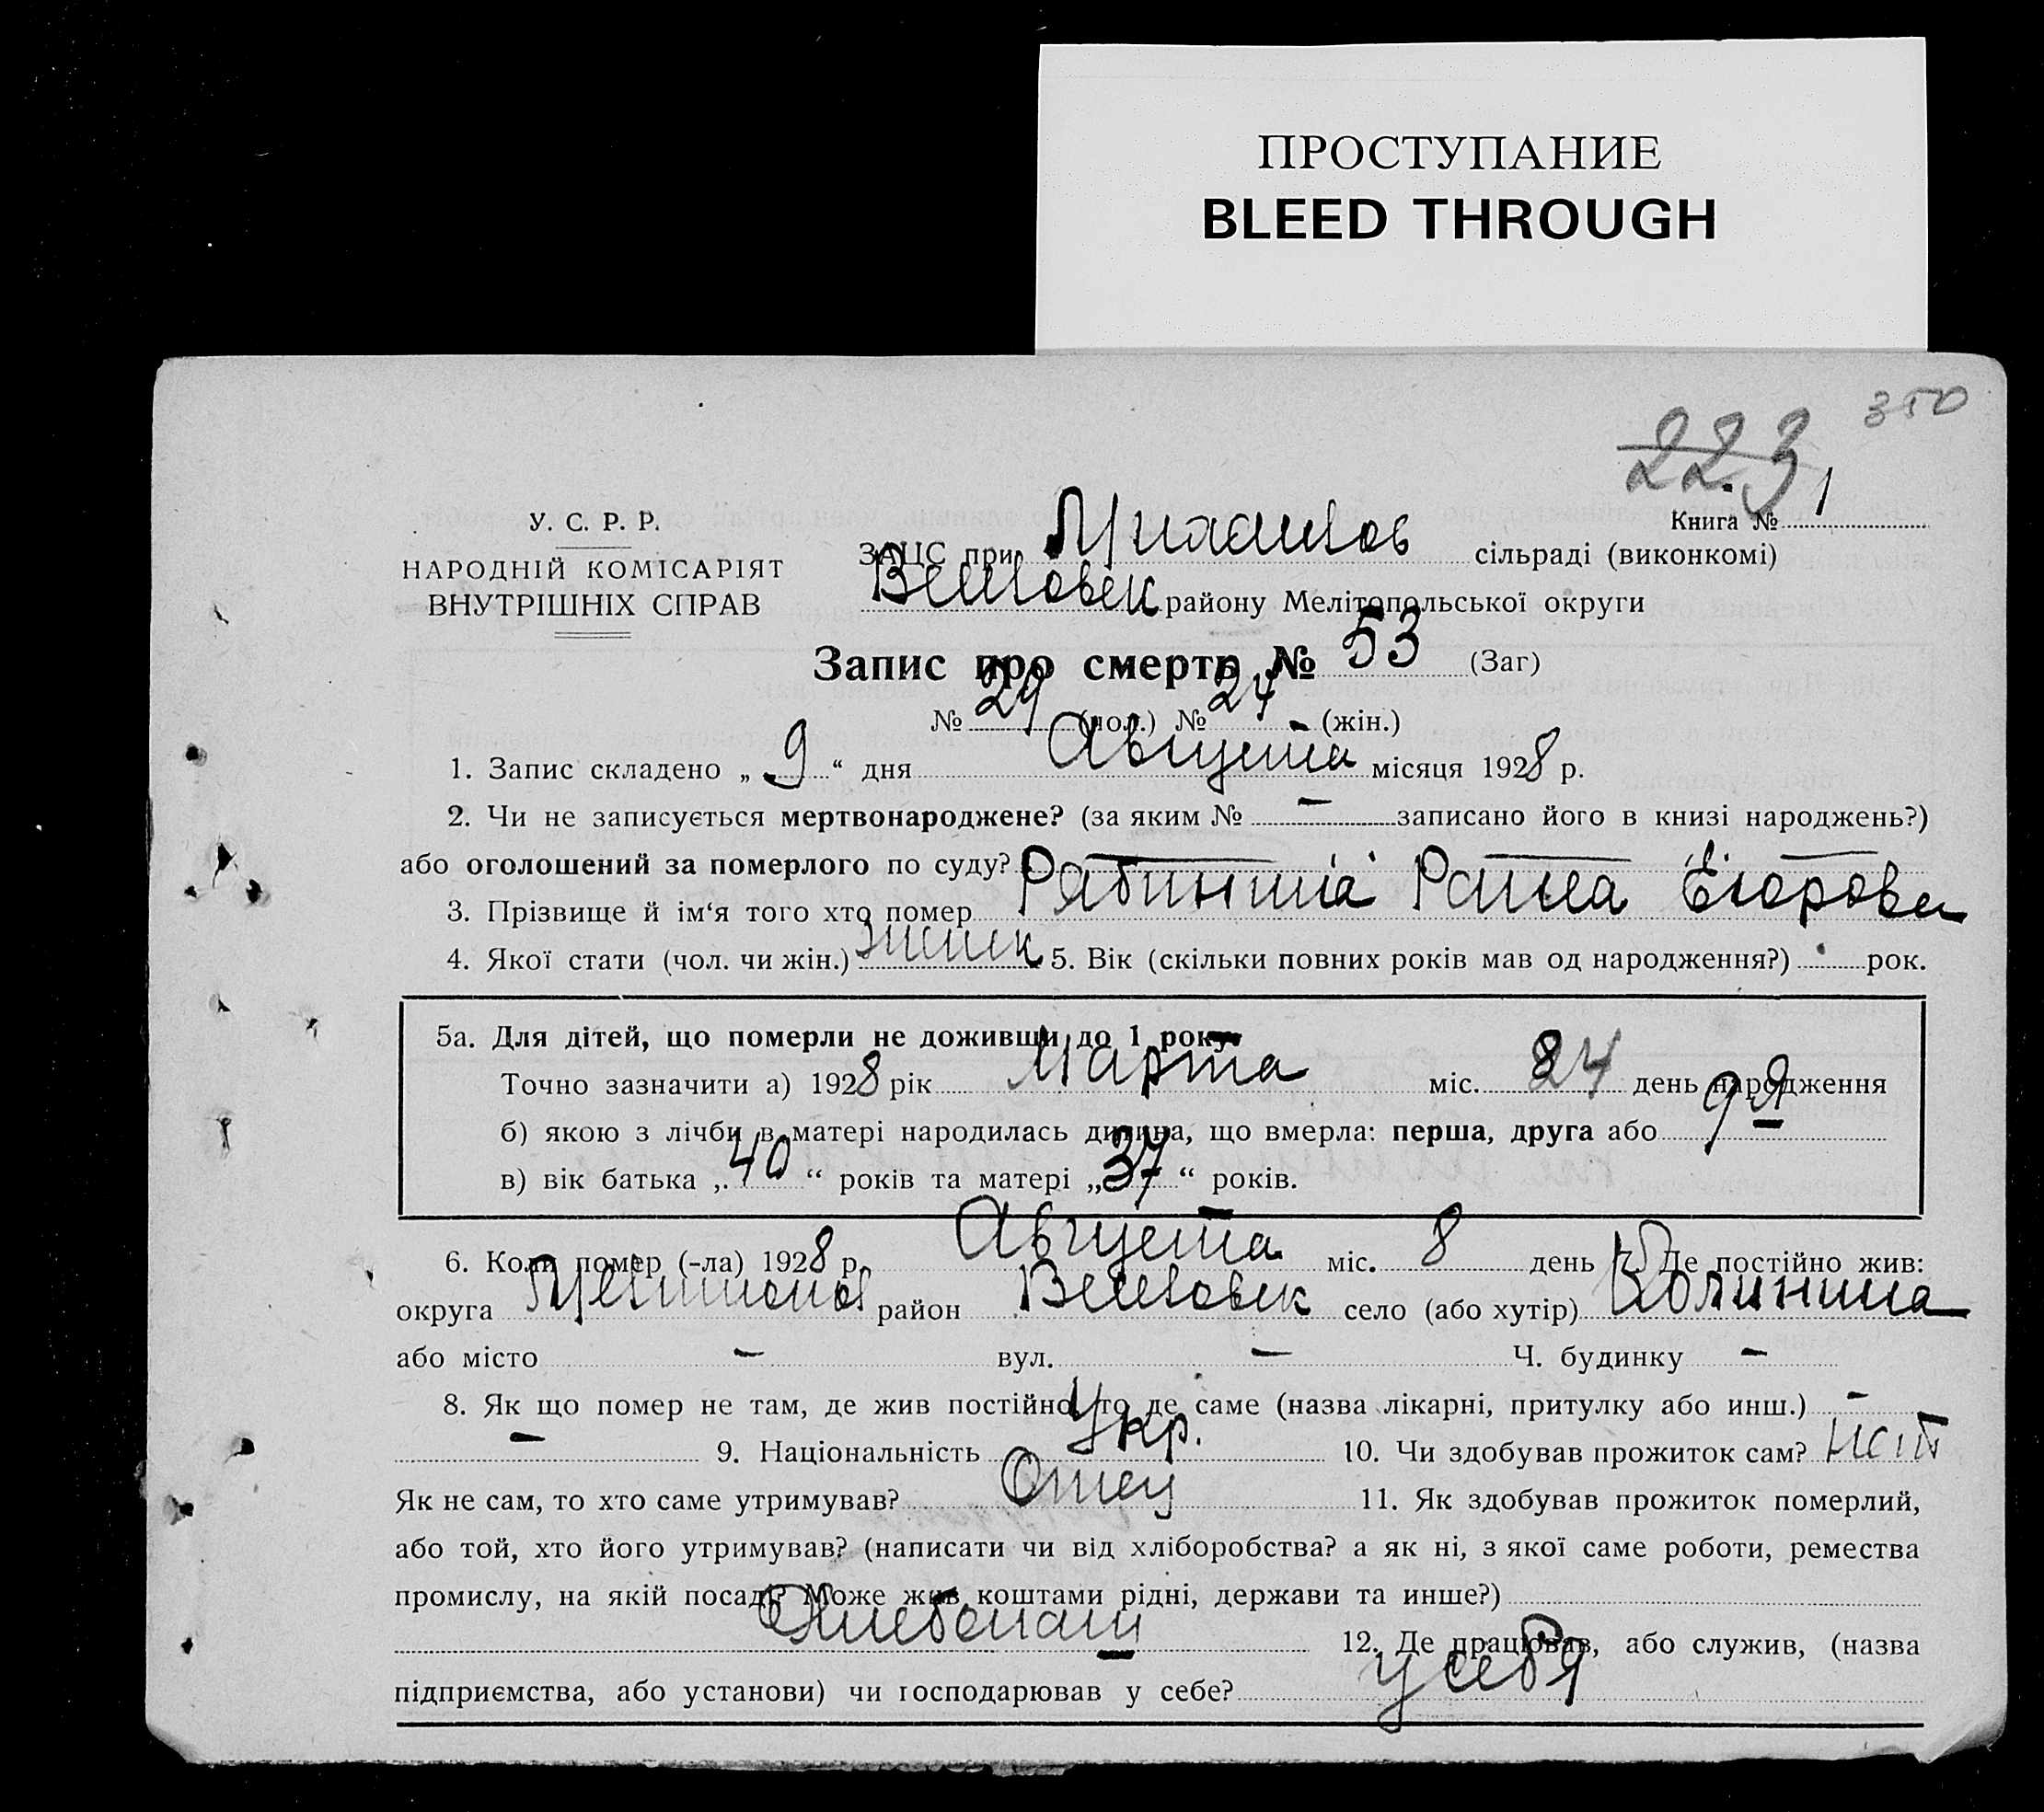 ПРОСТУПАНИЕ
BLEED THROUGH
350
223
Книга № 1
У. С. Р. Р.
НАРОДНІЙ КОМІСАРІЯТ
ВНУТРІШНІХ СПРАВ
ЗАЦС при сільраді (виконкомі)
району Мелітопольської округи
Запис про смерть № 53 (Заг)
№ 29 (чол.) № 24 (жін.)
1. Запис складено „ 9 “ дня Августа місяця 1928 р.
2. Чи не записується мертвонароджене? (за яким № — записано його в книзі народжень?)
або оголошений за померлого по суду?
3. Прізвище й ім‘я того хто помер Раиса Егорова
4. Якої стати (чол. чи жін.) 5. Вік (скільки повних років мав од народження?) рок.
5а. Для дітей, що померли не доживши до 1 року
Точно зазначити а) 1928 рік Марта міс. 24 день народження
б) якою з лічби в матері народилась дитина, що вмерла: перша, друга або 9я
в) вік батька „ 40 “ років та матері „ 37 “ років.
6. Коли помер (-ла) 1928 р. Августа міс. 8 день 7. Де постійно жив:
округа район село (або хутір)
або місто — вул. — Ч. будинку —
8. Як що помер не там, де жив постійно, то де саме (назва лікарні, притулку або инш.) —
— 9. Національність Укр. 10. Чи здобував прожиток сам? нет
Як не сам, то хто саме утримував? Отец 11. Як здобував прожиток померлий,
або той, хто його утримував? (написати чи від хліборобства? а як ні, з якої саме роботи, ремества
промислу, на якій посаді? Може жив коштами рідні, держави та инше?)
12. Де працював, або служив, (назва
підприємства, або установи) чи господарював у себе? у себя